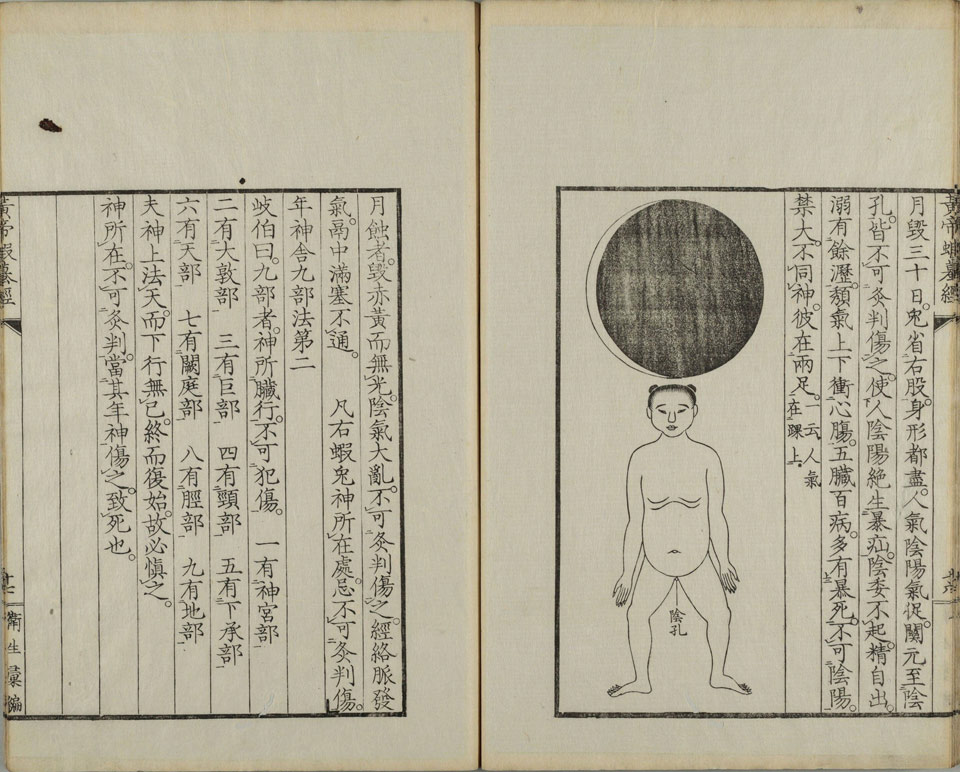 黃帝蝦蟇經
月毀三十日。兎省右股。身形都盡。人氣陰陽氣促。關元至陰
孔。皆不可灸判傷之。使人陰陽絶生暴疝。陰委不起。精自出。
溺有餘瀝。頽氣上下衝心腸。五臟百病。多有暴死。不可陰陽。
禁大不同神。彼在兩足。一云人氣
在踝上。
陰孔
月蝕者。毀赤黃而無光。陰氣大亂。不可灸判傷之。經絡脈發
氣鬲中滿塞不通。 凡右蝦兎神所在處。忌不可灸判傷。
年神舎九部法第二
岐伯曰。九部者。神所臟行。不可犯傷。 一有神宮部
二有大敦部 三有巨部 四有頸部 五有下承部
六有天部 七有闕庭部 八有脛部 九有地部
夫神上法天。而下行無已。終而復始。故必愼之。
神所在。不可灸判。當其年神傷之。致死也。
黃帝蝦蟇經
衛生彙編